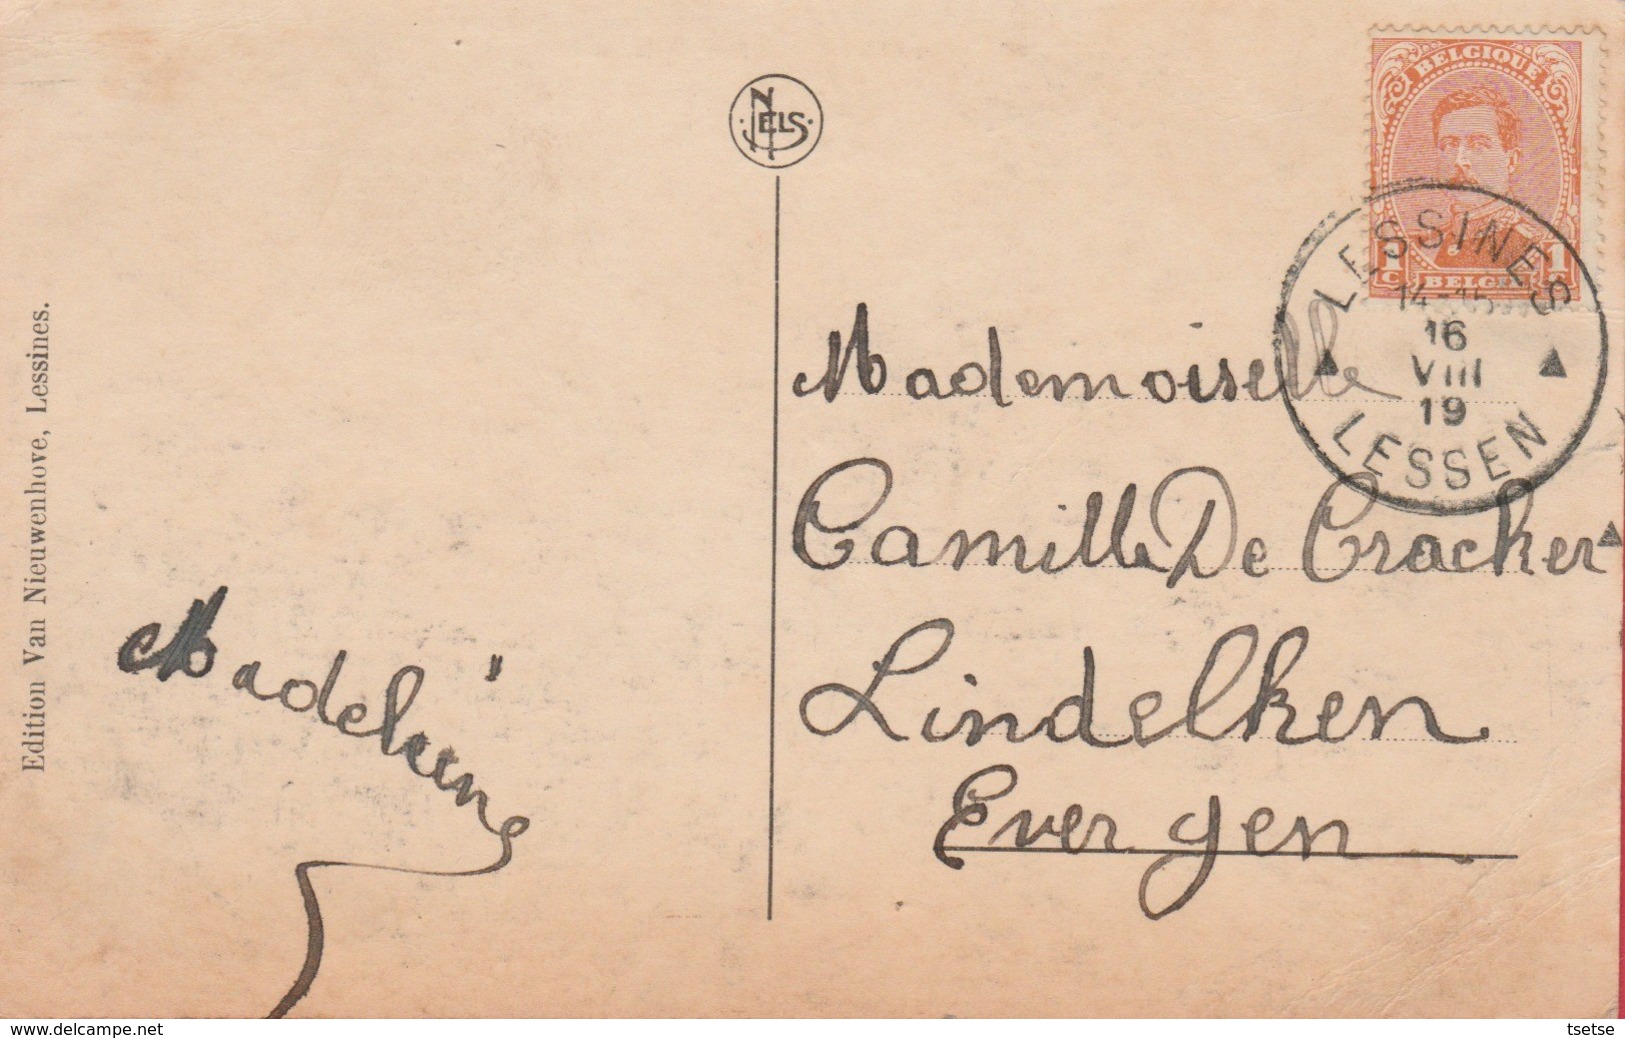 NELS
BELGIQUE
1c 1c
BELGIË
LESSINES
14-15
16
VIII
19
LESSEN
Edition Van Nieuwenhove, Lessines.
Madeleine
Mademoiselle
Camille De Cracker
Lindelken
Evergen
www.delcampe.net
tsetse